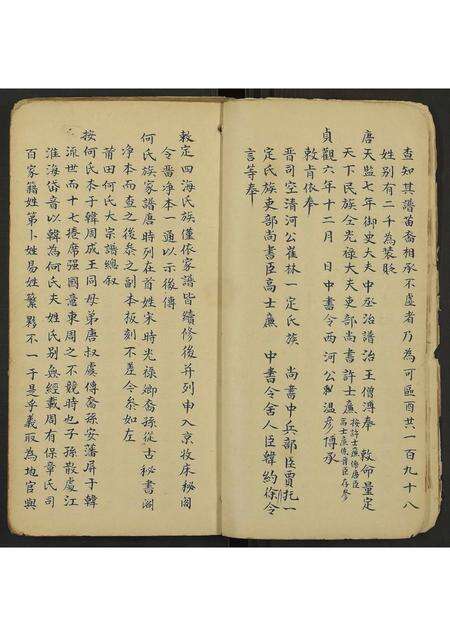 查知其譜苗裔相承不虛者乃為可區酉共一百九十八
姓別有二千為裝賬
唐天監七年御史大夫中丞治譜治王僧溥奉 敕命量定
天下民族全光祿大夫吏部尚書許士廉
按許士廉係唐臣
高士廉係晉臣存參
貞觀六年十二月 日中書令西河公 溫彥博承
敕肯依奉
晉司空清河公崔林一定氏族 尚書中兵部臣賈托一
定氏族吏部尚書臣高士廉 中書令舍人臣韓約徐令
言等奉
敕定四海氏族僅依家譜皆續修後并列申入京收床秘閣
令嗇淨本一通以示後傳
何氏族家譜唐時列在首姓宋時光祿卿裔孫從古秘書閣
淨本而查之後叅之副本板刻不差令叅如左
莆田何氏大宗譜總叙
按何氏本于韓周成王同母弟唐叔虞傳裔孫安藩屏于韓
流世而十七捲席强國意東周之不競時也子孫散處江
淮海岱音以韓為何氏夫姓氏別無經載周有保章氏司
百家籍姓第卜姓易姓繁夥不一于是乎義取為地官與